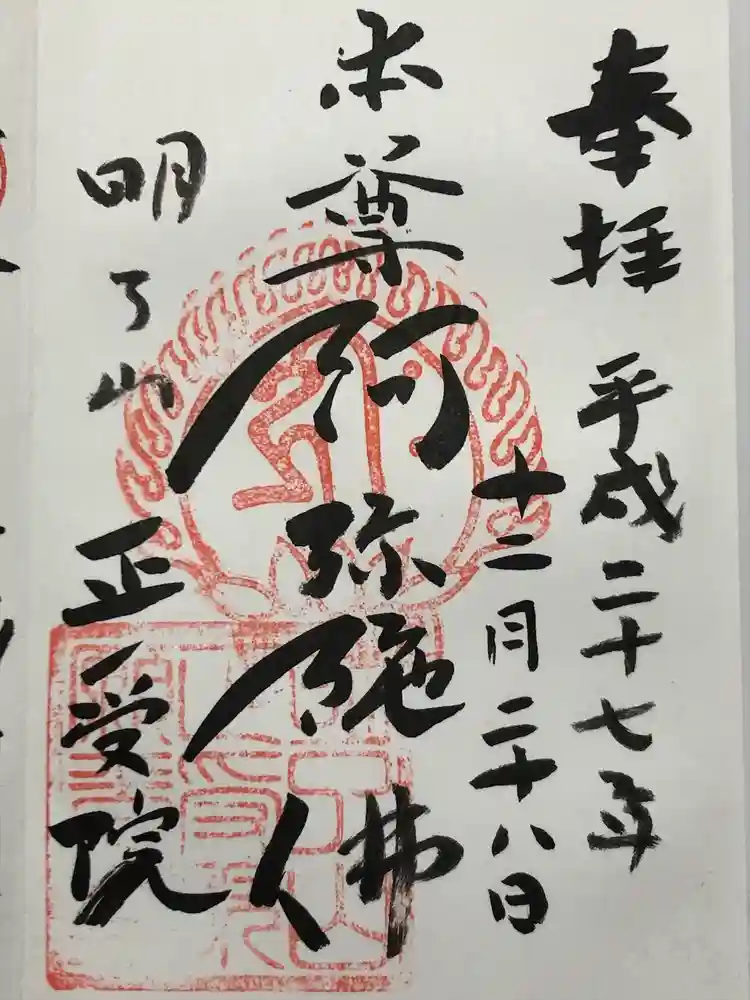 奉拝 平成二十七年
十二月二十八日
本尊 阿弥陀佛
明了山 正受院